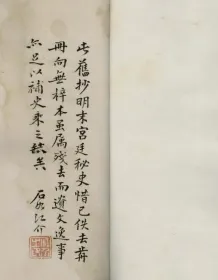 此舊抄明末宮廷秘史惜已佚去首
冊向無梓本虽属殘本而遺文逸事
亦足以補史乘之缺矣